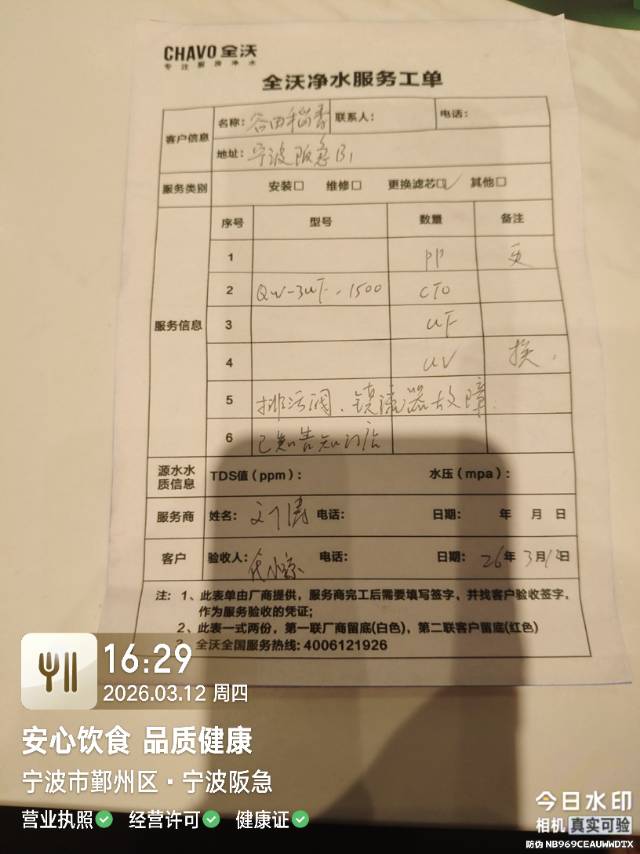 CHAVO 全沃
专注厨房净水
全沃净水服务工单
客户信息 名称：谷田稻香 联系人： 电话：
地址：宁波阪急B1
服务类别 安装□ 维修□ 更换滤芯□✓ 其他□
序号 型号 数量 备注
服务信息
1 PP 更
2 QW-3UF-1500 CTO
3 UF
4 UV 换.
5 排污阀、镇流器故障.
6 已知告知门店
源水水质信息 TDS值（ppm）： 水压（mpa）：
服务商 姓名： 电话： 日期： 年 月 日
客户 验收人： 电话： 日期：26年3月12日
注：1、此表单由厂商提供，服务商完工后需要填写签字，并找客户验收签字，
作为服务验收的凭证；
2、此表一式两份，第一联厂商留底(白色)，第二联客户留底(红色)
3、全沃全国服务热线：4006121926
16:29
2026.03.12 周四
安心饮食 品质健康
宁波市鄞州区·宁波阪急
营业执照 经营许可 健康证
今日水印
相机 真实可验
防伪 NB969CEAUWWDTX